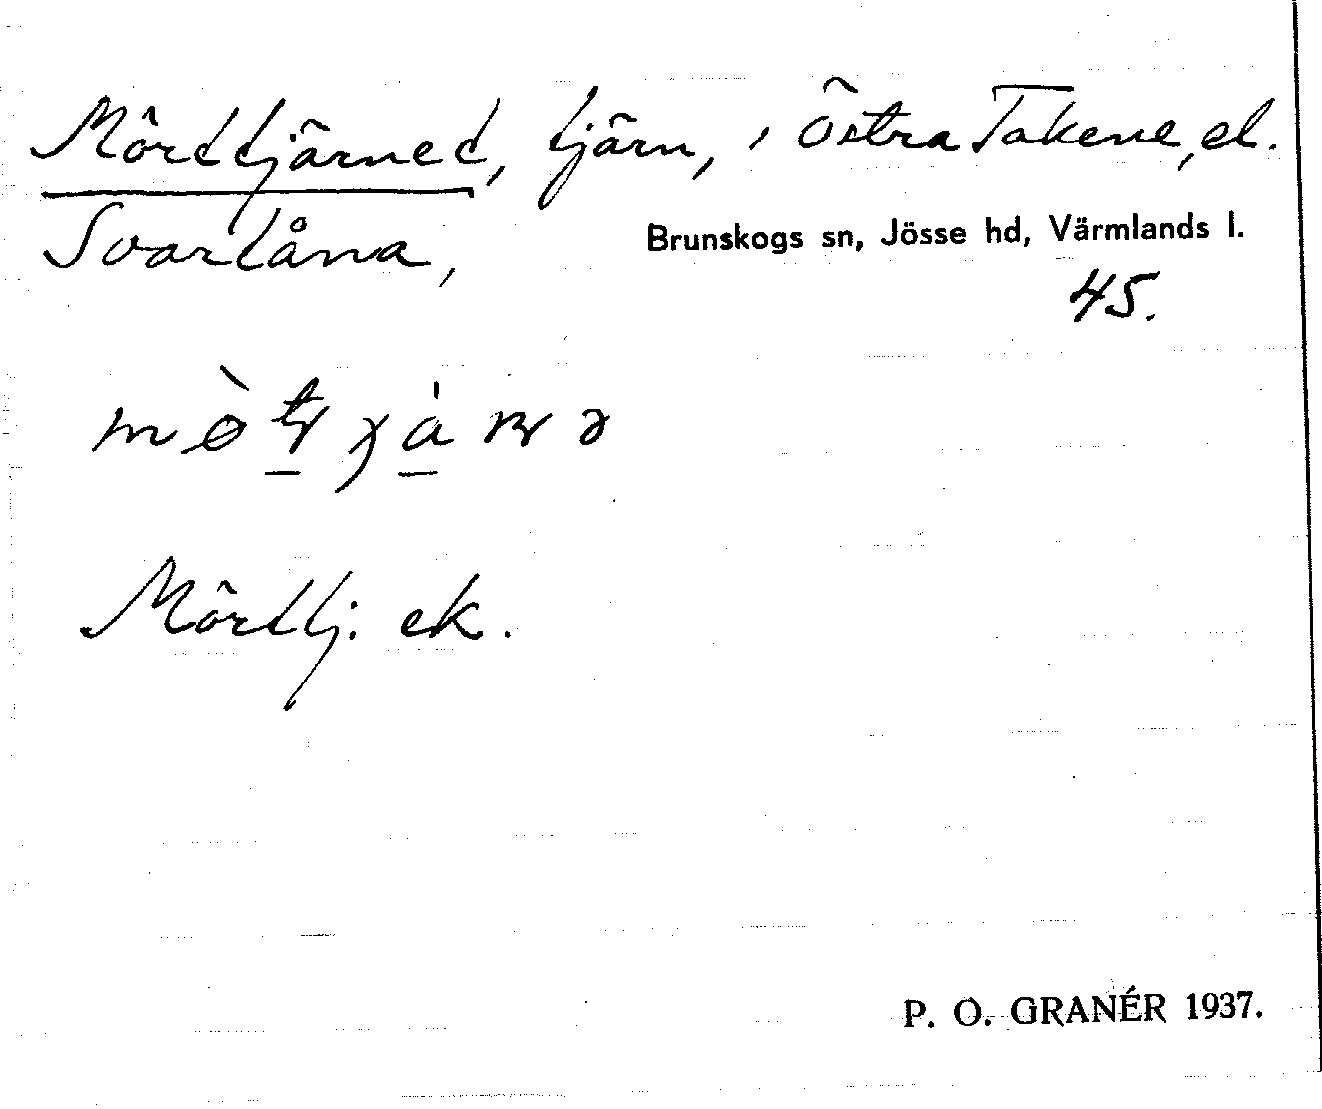 Mörttjärnet, tjärn, i Östra Takene, el.
Svartåna,
Brunskogs sn, Jösse hd, Värmlands l.
45.
Mörttj. ek.
P. O. GRANÉR 1937.